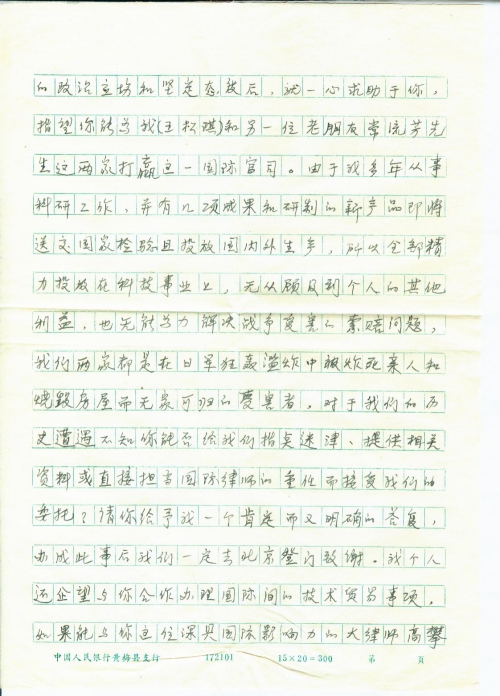 的政治立场和坚定有致后，诚一心求助于你，
指望你能为我(王松琪)和另一位老朋友常流芳先
生这两家打赢这一国际官司。由于我多年从事
科研工作，并有几项成果和研制的新产品即将
送交国家检验且投放国内外生产，所以全部精
力投放在科技事业上，无从顾及到个人的其他
利益，也无能为力解决战争受害的索赔问题，
我们两家都是在日军狂轰滥炸中被炸死亲人和
烧毁房屋而无家可归的受害者。对于我们的历
史遭遇不知你能否给我们指点迷津、提供相关
资料或直接担当国际律师的重任而接受我们的
委托？请你给予我一个肯定而又明确的答复，
办成此事后我们一定去北京登门致谢。我个人
还企望与你合作办理国际间的技术贸易事项。
如果能与你这位深具国际影响力的大律师高攀
中国人民银行黄梅县支行 172101 15×20=300 第 页